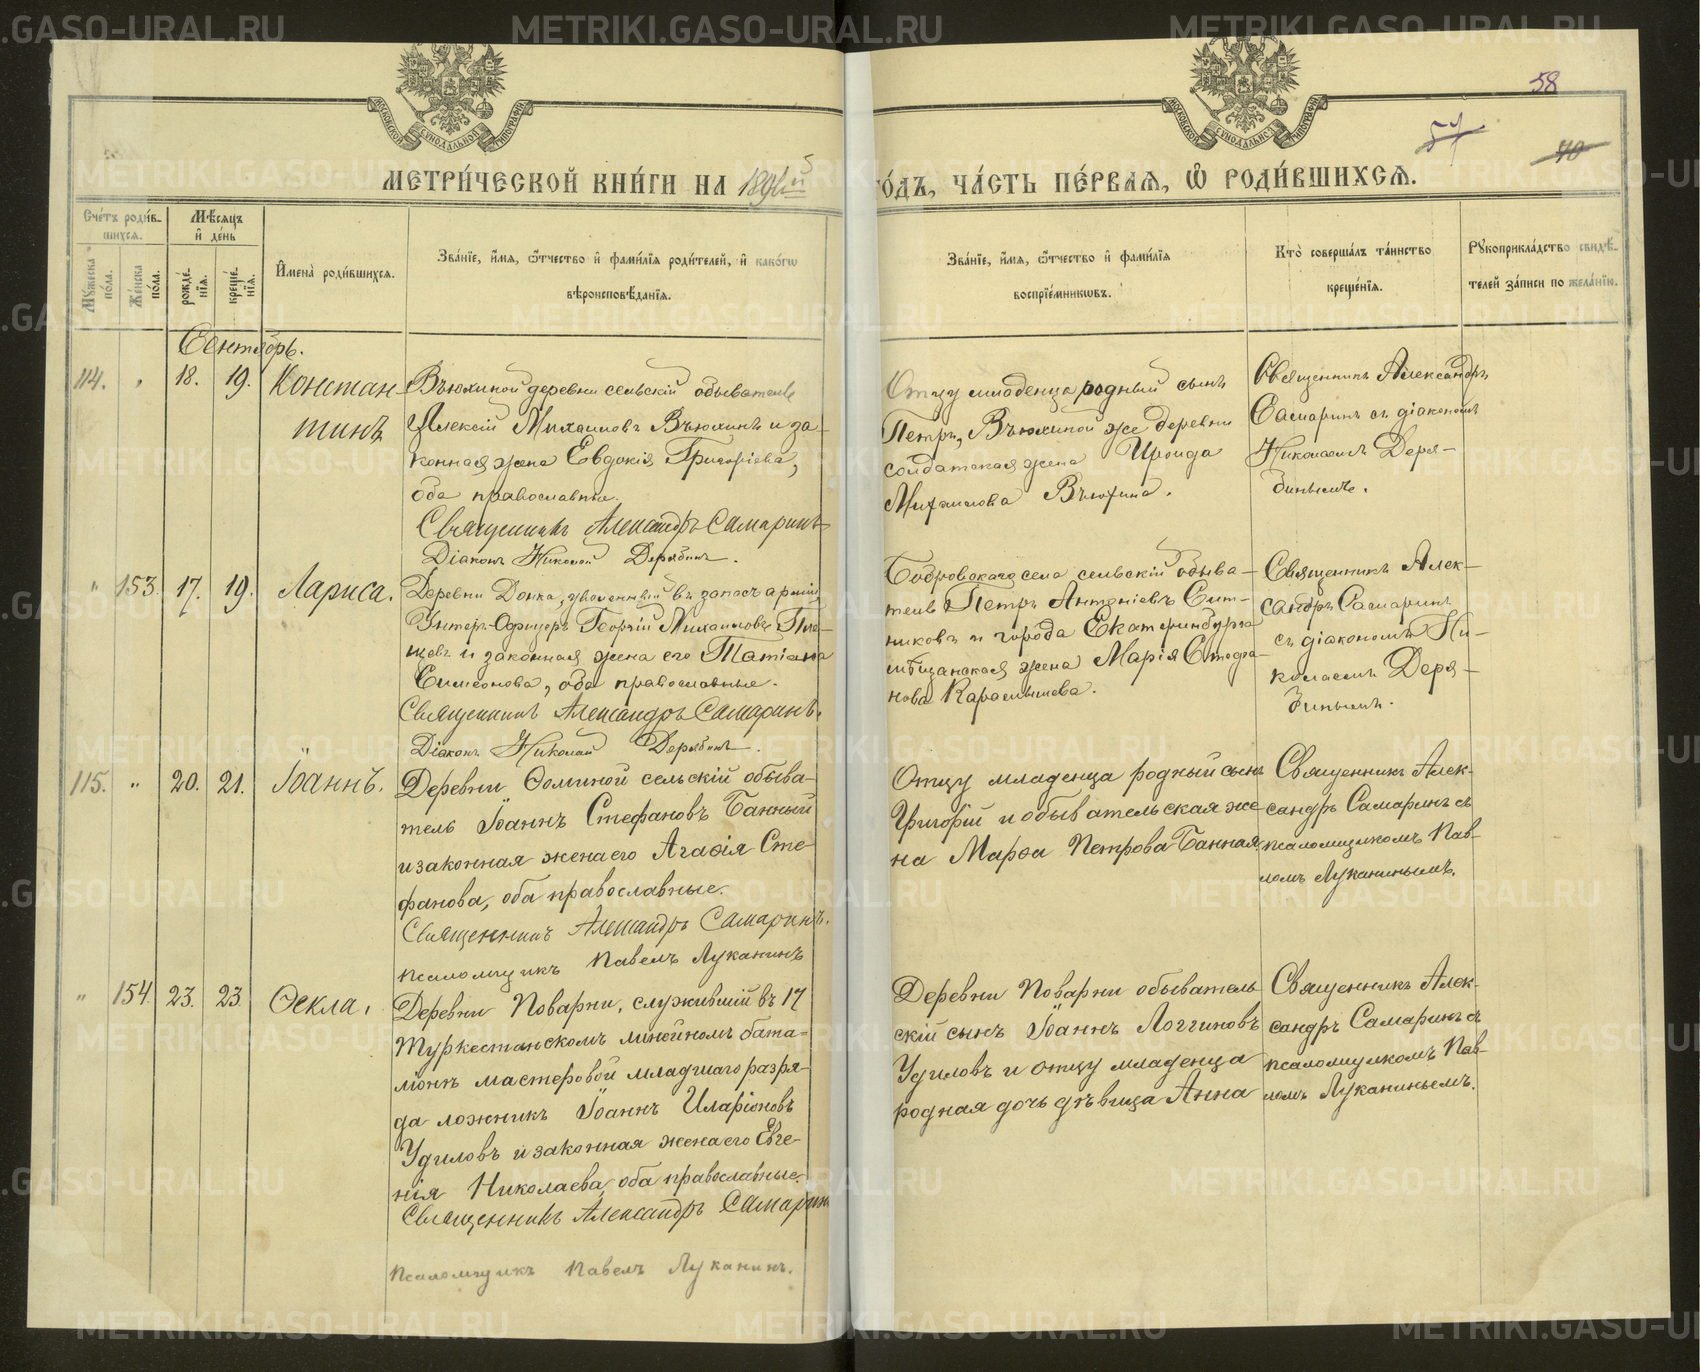 58
57
70
МОСКОВСКОЙ СѴНОДАЛЬНОЙ ТИПОГРАФІИ
МОСКОВСКОЙ СѴНОДАЛЬНОЙ ТИПОГРАФІИ
МЕТРИ́ЧЕСКОЙ КНИ́ГИ НА 189
ГО́ДЪ, ЧА́СТЬ ПЕ́РВАѦ, Ѡ РОДИ́ВШИХСѦ.
Сче́тъ роди́в-
шихсѧ.
Мѣ́сѧцъ
и҆ де́нь
Му́жеска по́ла.
Же́нска по́ла.
рожде́-
нїѧ.
креще́-
нїѧ.
И҆мена̀ роди́вшихсѧ.
Зва́нїе, и҆́мѧ, ѻ҆́тчество и҆ фами́лїѧ роди́телей, и҆ како́гѡ
вѣроисповѣ́данїѧ.
Зва́нїе, и҆́мѧ, ѻ҆́тчество и҆ фами́лїѧ
воспрїе́мникѡвъ.
Кто̀ соверша́лъ та́инство
креще́нїѧ.
Рꙋкоприкла́дство свидѣ́-
телей за́писи по жела́нїю.
Сентябрь.
114. " 18. 19. Констан-
тинъ
Вьюхиной деревни сельскій обыватель
Алексій Михаиловъ Вьюхинъ и за-
конная жена Евдокія Григоріева,
оба православные.
Священникъ Александръ Самаринъ
Діаконъ Николай Дерябинъ.
Отцу младенца родный сынъ
Петръ, Вьюхиной же деревни
солдатская жена Ироида
Михаилова Вьюхина.
Священникъ Александръ
Самаринъ съ діакономъ
Николаемъ Деря-
бинымъ.
" 153. 17. 19. Лариса.
Деревни Донка, уволенный въ запасъ арміи
Унтеръ-Офицеръ Георгій Михаиловъ Пле-
щевъ и законная жена его Татіана
Симеонова, оба православные.
Священникъ Александръ Самаринъ.
Діаконъ Николай Дерябинъ.
Бобровскаго села сельскій обыва-
тель Петръ Антоніевъ Сит-
никовъ и города Екатеринбурга
мѣщанская жена Марія Стефа-
нова Карамышева.
Священникъ Алек-
сандръ Самаринъ
съ діакономъ Ни-
колаемъ Деря-
бинымъ.
115. " 20. 21. Іоаннъ.
Деревни Ѳоминой сельскій обыва-
тель Іоаннъ Стефановъ Банный
и законная жена его Агаѳія Сте-
фанова, оба православные.
Священникъ Александръ Самаринъ.
псаломщикъ Павелъ Луканинъ
Отцу младенца родный сынъ
Григорій и обывательская же-
на Марѳа Петрова Банная
Священникъ Алек-
сандръ Самаринъ съ
псаломщикомъ Пав-
ломъ Луканинымъ.
" 154. 23. 23 Ѳекла.
Деревни Поварни, служившій въ 17
Туркестанскомъ линейномъ бата-
ліонѣ мастеровой младшаго разря-
да ложникъ Іоаннъ Иларіоновъ
Удиловъ и законная жена его Евге-
нія Николаева, оба православные.
Священникъ Александръ Самаринъ
Псаломщикъ Павелъ Луканинъ.
Деревни Поварни обыватель-
скій сынъ Іоаннъ Логгиновъ
Удиловъ и отцу младенца
родная дочь дѣвица Анна
Священникъ Алек-
сандръ Самаринъ съ
псаломщикомъ Пав-
ломъ Луканинымъ.
METRIKI.GASO-URAL.RU